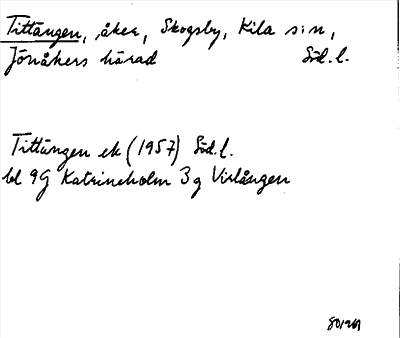 Tittängen, åker, Skogsby, Kila s:n,
Jönåkers härad Söd.l.
Tittängen ek (1957) Söd.l.
bl 9G Katrineholm 3g Virlången